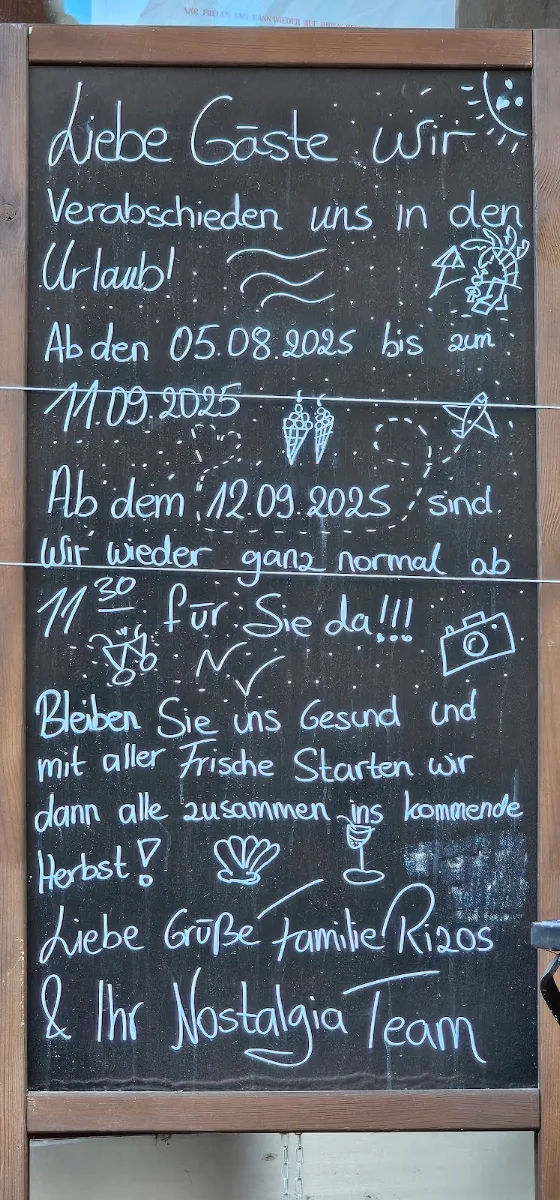 WIR FREUEN UNS DANN WIEDER AUF IHREN
Liebe Gäste wir
Verabschieden uns in den
Urlaub!
Ab den 05.08.2025 bis zum
11.09.2025
Ab dem 12.09.2025 sind
wir wieder ganz normal ab
11 30 für Sie da!!!
Bleiben Sie uns Gesund und
mit aller Frische Starten wir
dann alle zusammen ins kommende
Herbst!
Liebe Grüße familie Rizos
& Ihr Nostalgia Team